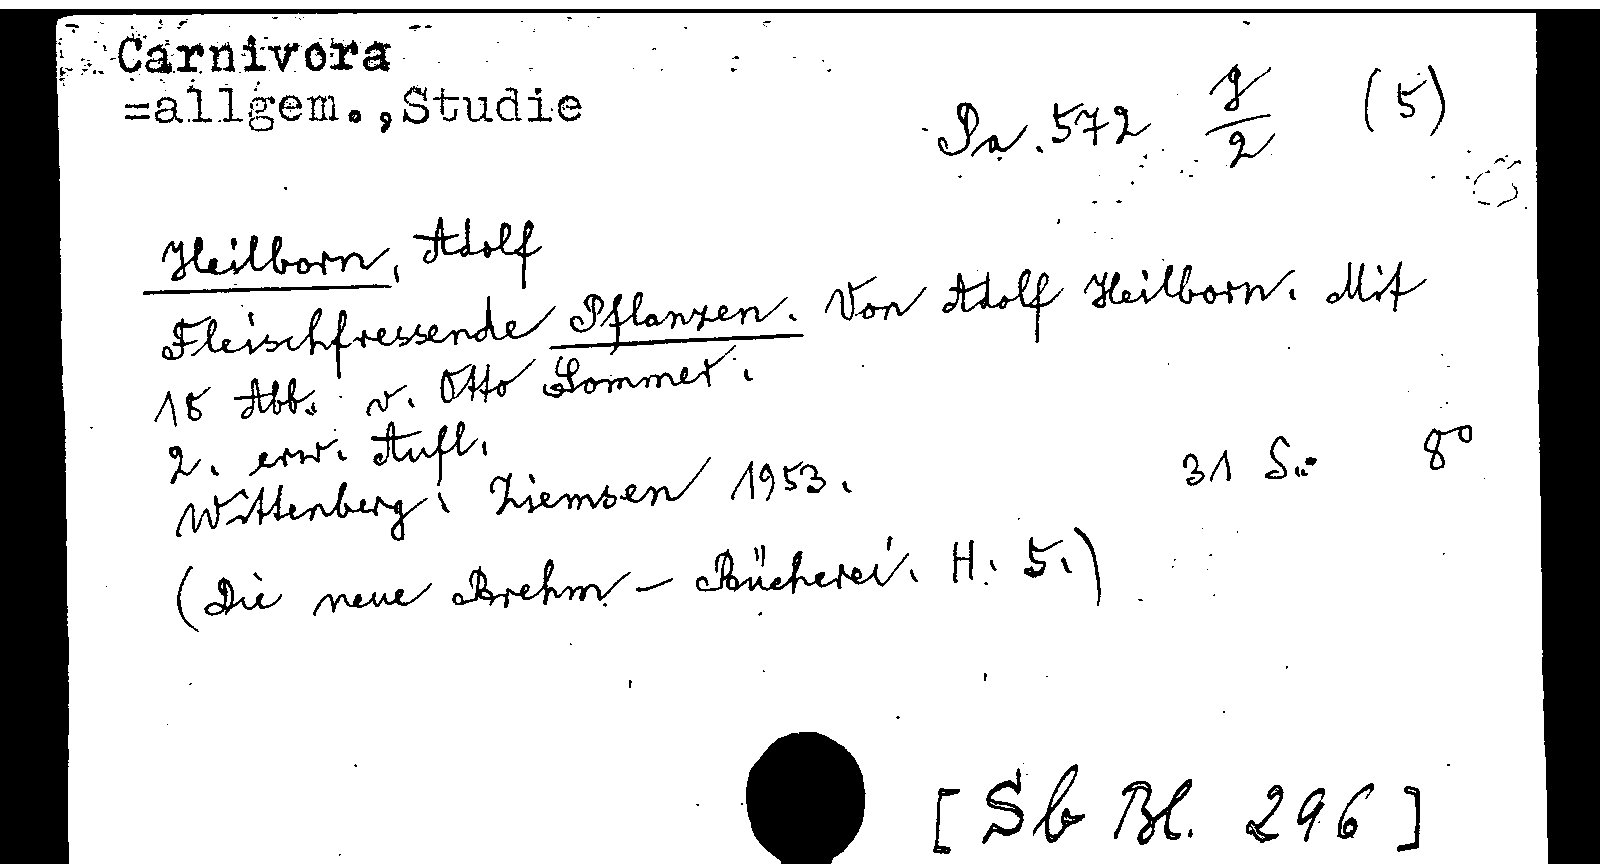 Carnivora
=allgem.,Studie
Pa. 572 g/2 (5)
Heilborn, Adolf
Fleischfressende Pflanzen. Von Adolf Heilborn. Mit
18 Abb. v. Otto Sommer.
2. erw. Aufl.
Wittenberg: Ziemsen 1953. 31 S. 8°
(Die neue Brehm-Bücherei. H. 5.)
[Sb Bl. 296]